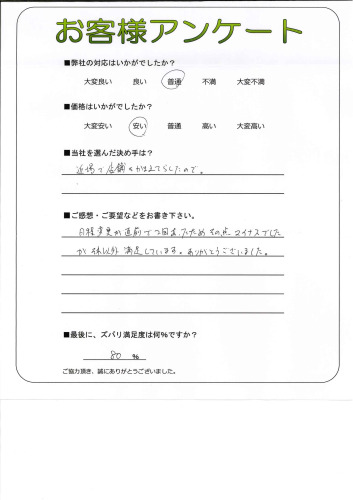 お客様アンケート
■弊社の対応はいかがでしたか？
大変良い 良い 普通 不満 大変不満
■価格はいかがでしたか？
大変安い 安い 普通 高い 大変高い
■当社を選んだ決め手は？
近場で店舗をかまえてらしたので。
■ご感想・ご要望などをお書き下さい。
日程変更が直前で2回あったため その点 マイナスでした
が それ以外 満足しています。ありがとうございました。
■最後に、ズバリ満足度は何%ですか？
80 %
ご協力頂き、誠にありがとうございました。